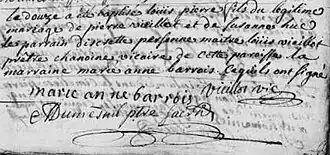 Le douze a été baptisé louis pierre fils du légitime
mariage de pierre vieillot et de susanne hue
le parrain discrette personne maitre louis vieillot
prêtre chanoine vicaire de cette paroisse la
marraine marie anne barrois lesquels ont signé
marie anne barrois vieillot vic
Dumesnil ptre